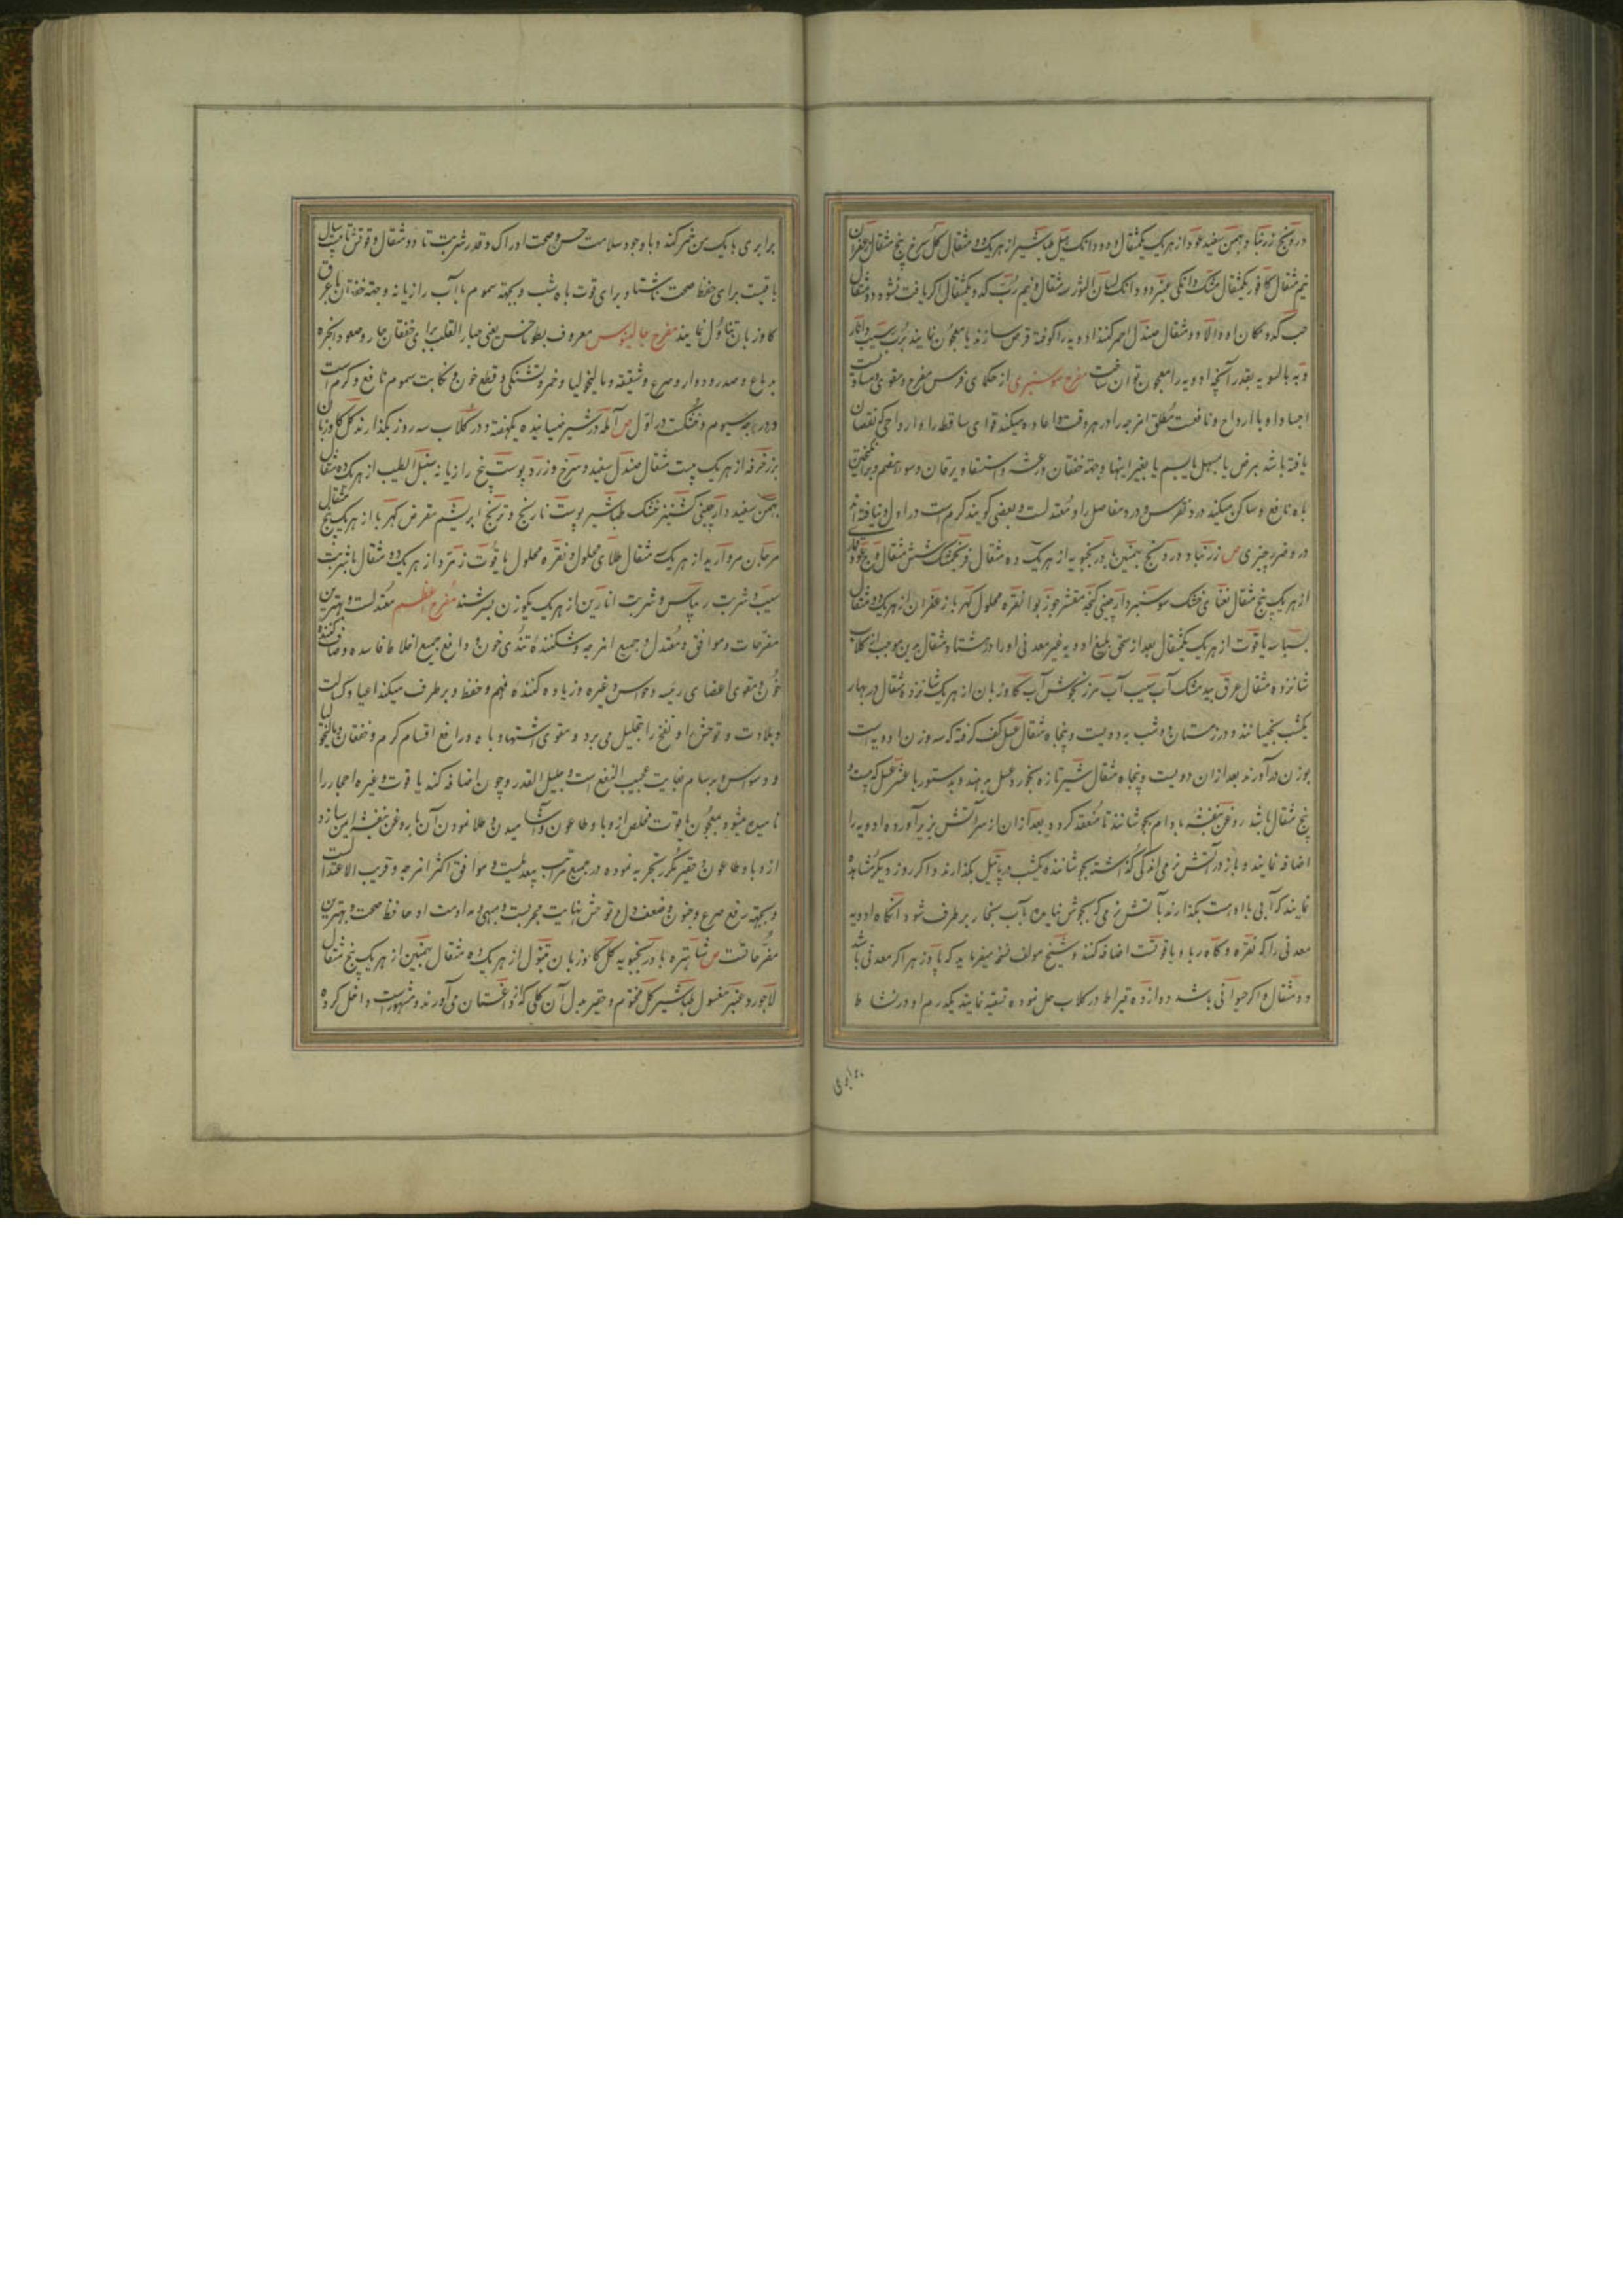 درونج زرنباد بهمن سفید عود از هر یک یکمثقال و دو دانک هیل طباشیر از هر یک دو مثقال کل سرخ پنج مثقال زعفران
نیم مثقال کافور یکمثقال مشک دانکی عنبر دو دانک لسان الثور سه مثقال و نیم رب کدو یکمثقال اکر یافت نشود دو مثقال
حب کدو مکان او والا دو مثقال صندل احمر کنند ادویه را کوفته قرص سازند یا معجون نمایند برب سیب و انار
و به بالسویه بقدر آنچه ادویه را معجون توان ساخت مفرح سوسنبری از حکمای فرس مفرح و مقوی و مساوت
اجساد او با ارواح و نافعست مطلق امزجه را در هر وقت و اعاده میکند قوای ساقط را و ارواحی که نقصان
یافته باشد بمرض یا بمسهل یا بسم یا بغیر اینها و جهة خفقان و رعشه و استسقا و یرقان و سوء هضم و برانکیختن
باه نافع و ساکن میکند درد نقرس و درد مفاصل را و معتدلست و بعضی کویند کرم است در اول و نیافته‌اند
درو ضرر چیزی ص زرنباد و درونج بهمنین بادرنجبویه از هر یک ده مثقال فرنجمشک شش مثقال وج عود قماری
از هر یک پنج مثقال نعنای خشک سوسنبر دارچینی کنجد مقشر جوز بوا نقره محلول کهربا زعفران از هر یک دو مثقال
بسباسه یاقوت از هر یک یکمثقال بعد از سحق بلیغ ادویه غیر معدنی او را در شتا و مثقال بدین موجب از کلاب
شانزده مثقال عرق بیدمشک آب سیب آب مرزنجوش آب کاوزبان از هر یک شانزده مثقال در بهار
یکشب بخیسانند و در زمستان دو شب به دویست و پنجاه مثقال عسل کف کرفته که سه وزن ادویه است
بوزن درآورند بعد از ان دویست و پنجاه مثقال شیر تازه بخورد عسل بدهند و بدستور با عشر عسل که بیست و
پنج مثقال باشد روغن بنفشه بادام بجوشانند تا منعقد کردد بعد از ان از سر آتش بزیر آورده ادویه را
اضافه نمایند و باز در آتش نرمی اندکی کذاشته بجوشانند و یکشب در پاتیل بکذارند و اکر روز دیکر مشاهده
نمایند که آبی با اوست بکذارند بآتش نرمی که بجوش نیاید و آب ببخار برطرف شود آنکاه ادویه
معدنی را که نقره و کاه ربا و یاقوتست اضافه کنند و شیخ مولف نسخه میفرماید که پادزهر اکر معدنی باشد
دو مثقال و اکر حیوانی باشد دوازده قیراط در کلاب حل نموده تسقیه نمایند یکدرم او در نشاط
برابری با یک من خمر کند و با وجود سلامت حس و صحت ادراک و قدر شربت تا دو مثقال و قوتش تا بیست سال
باقیست برای حفظ صحت ناشتا و برای قوت باه شب و بجهة سموم با آب رازیانه و جهة خفقان با عرق
کاوزبان تناول نمایند مفرح جالینوس معروف بطوناخس یعنی جبار القلب برای خفقان حار و صعود ابخره
بدماغ و صدر و دوار و صرع و شقیقه و مالیخولیا و خمر و تشنکی و قطع خون و نکایت سموم نافع و کرم است
در درجه سیوم و خشکست در اول ص آمله در شیر خیسانیده یکهفته و در کلاب سه روز بکذارند کل کاوزبان
بزر خرفه از هر یک بیست مثقال صندل سفید و سرخ و زرد پوست بیخ رازیانه سنبل الطیب از هر یک ده مثقال
بهمن سفید دارچینی کشنیز خشک طباشیر پوست نارنج و ترنج ابریشم مقرض کهربا از هر یک پنج مثقال
مرجان مروارید از هر یک سه مثقال طلای محلول و نقره محلول یاقوت زمرد از هر یک دو مثقال با شربت
سیب و شربت ریباس و شربت انارین از هر یک یکوزن بسرشند مفرح اعظم معتدلست و بهترین
مفرحات و موافق و معتدل و جمیع امزجه و شکننده تندی خون و دافع جمیع اخلاط فاسده و صاف کننده
خون و مقوی اعضای رئیسه و حواس و غیره و زیاده کننده فهم و حفظ و برطرف میکند اعیا و کسالت
و بلادت و توحش او نفخ را بتحلیل می برد و مقوی اشتها و باه و رافع اقسام کرم و خفقان و مالیخولیا
و وسواس و برسام بغایت عجیب النفع است و جلیل القدر و چون اضافه کنند یاقوت و غیره احجار را
نامیده میشود بمعجون یاقوت مخلص از وبا و طاعون و آشامیدن و طلا نمودن آن با روغن بنفشه ایمن سازد
از وبا و طاعون و حقیر مکرر تجربه نموده در جمیع مراتب بیعدیلست و موافق اکثر امزجه و قریب الاعتدالست
و بجهة رفع صرع و جنون و ضعف دل و توحش بنهایت مجربست و مبهی و مداومت او حافظ صحت و بهترین
مفرحاتست ص شاهتره بادرنجبویه کل کاوزبان تنبول از هر یک ده مثقال بهمنین از هر یک پنج مثقال
لاجورد عنبر مغسول طباشیر کل مختوم و حقیر بدل آن کلی که از داغستان می آورند و مشهور است داخل کرده